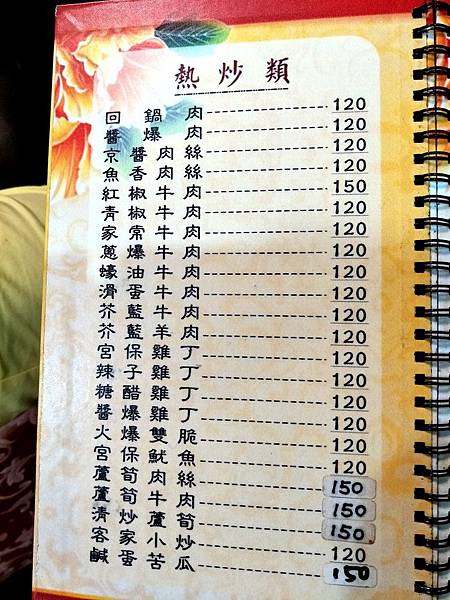 熱炒類
回鍋肉 120
醬爆肉 120
京醬肉絲 120
魚香肉絲 120
紅椒牛肉 150
青椒牛肉 120
家常牛肉 120
蔥爆牛肉 120
蠔油牛肉 120
滑蛋牛肉 120
芥藍牛肉 120
芥藍羊肉 120
宮保雞丁 120
辣子雞丁 120
糖醋雞丁 120
醬爆雞丁 120
火爆雙脆 120
宮保魷魚 120
蘆筍肉絲 150
蘆筍牛肉 150
清炒蘆筍 150
客家小炒 120
鹹蛋苦瓜 150